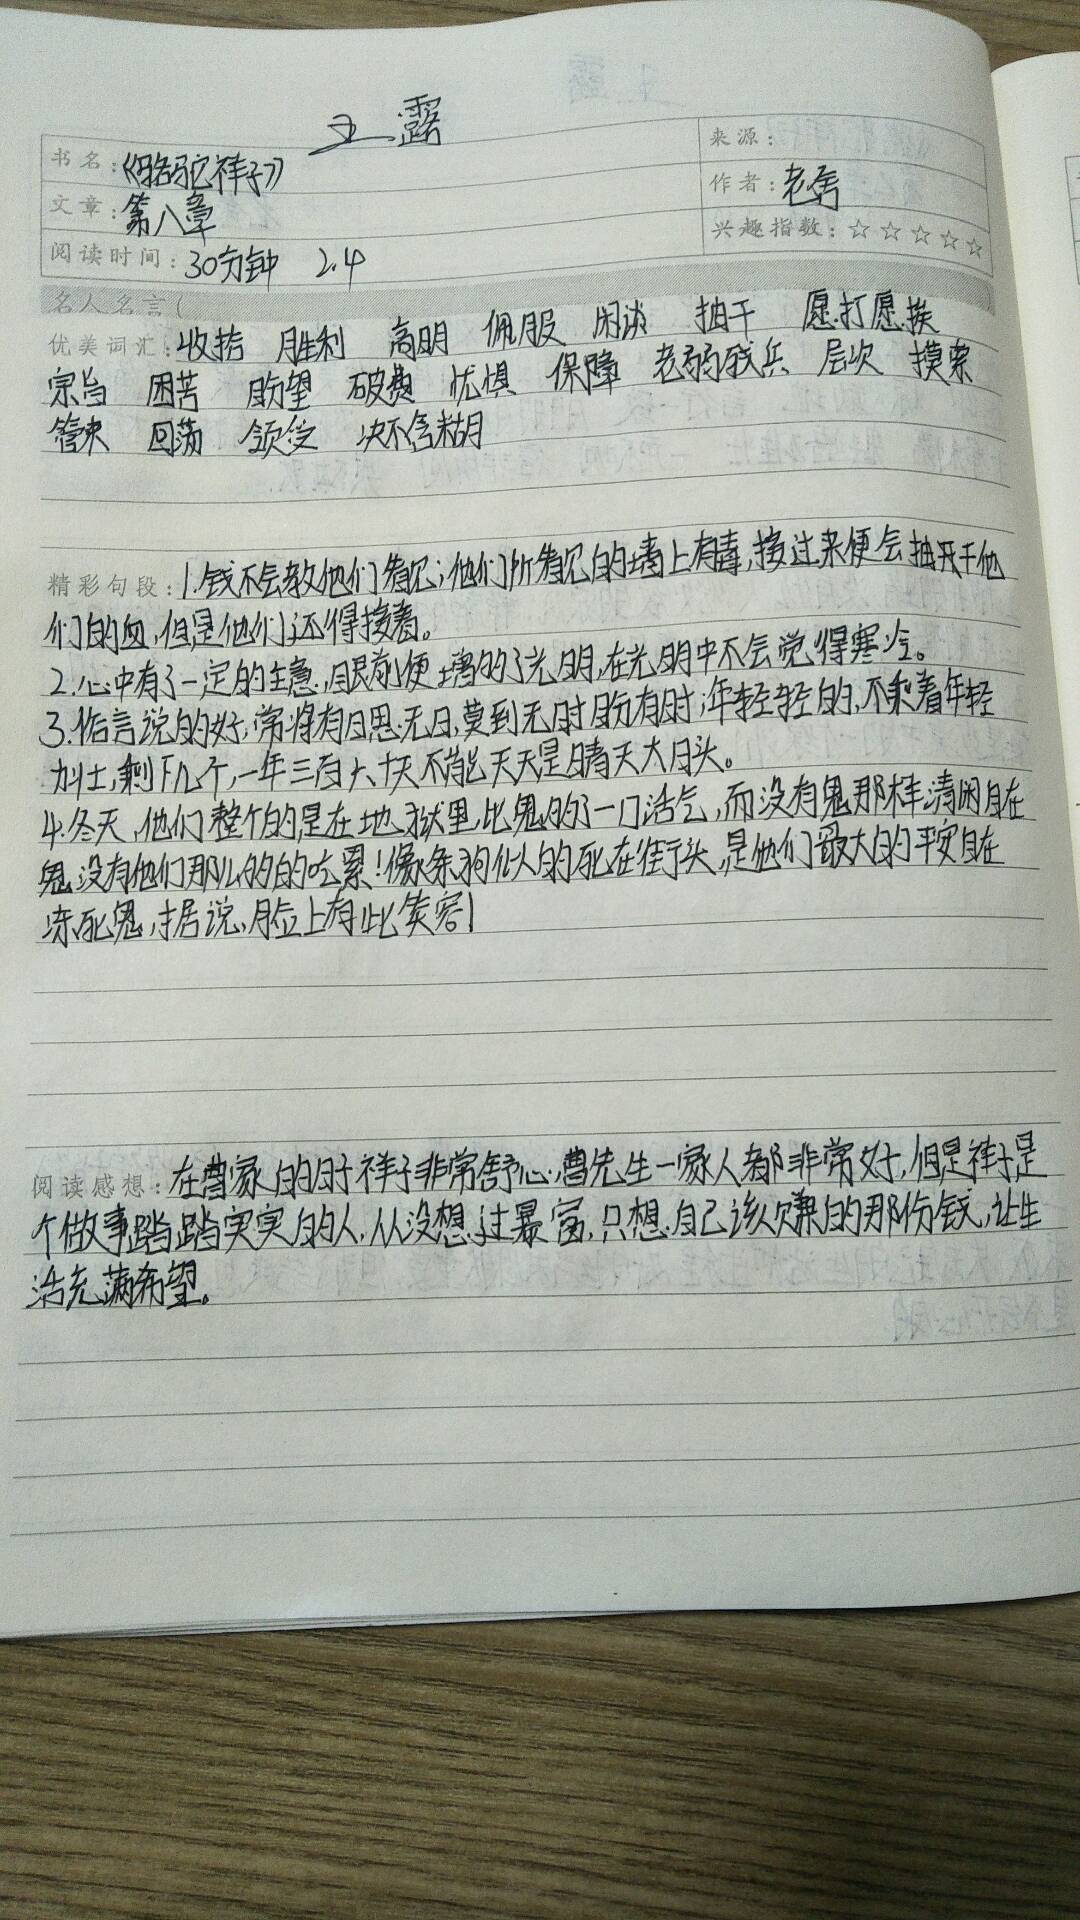 王露
书名:《骆驼祥子》
来源:
文章:第八章
作者:老舍
阅读时间:30分钟 2.4
兴趣指数:☆☆☆☆☆
名人名言(
优美词汇:收拾 胜利 高明 佩服 闲谈 抽干 愿打愿挨
宗旨 困苦 盼望 破费 忧惧 保障 老弱残兵 层次 摸索
管束 回荡 领受 决不含糊
精彩句段:1.钱不会教他们看见;他们所看见的钱上有毒,接过来便会抽干他
们的血,但是他们还得接着。
2.心中有了一定的主意,眼前便增多了光明,在光明中不会觉得寒冷。
3.俗言说的好,常将有日思无日,莫到无时盼有时;年轻轻的,不乘着年轻
剩下几个,一年三百六十天不能天天是晴天大日头。
4.冬天,他们整个的是在地狱里,比鬼的了一口活气,而没有鬼那样清闲自在
鬼没有他们那么多的吃累!像条狗似的死在街头,是他们最大的平安自在
冻死鬼,据说,脸上有些笑容!
阅读感想:在曹家的日子祥子非常舒心,曹先生一家人都非常好,但是祥子是
个做事踏踏实实的人,从没想过暴富,只想自己该赚的那份钱,让生
活充满希望。